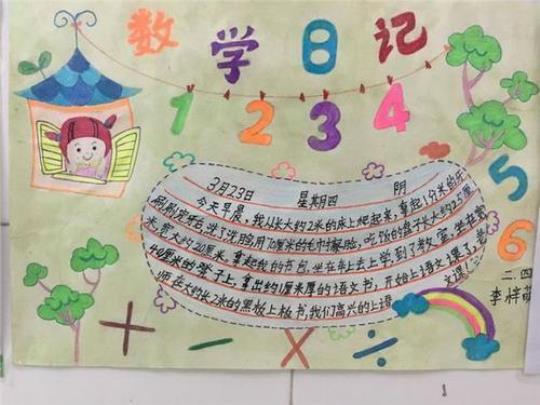 数学日记
1 2 3 4
5
6
3月23日 星期四 阴
今天早晨,我从长大约2米的床上爬起来,拿起1分米的牙
刷刷发牙后,洗了洗脸用70厘米的毛巾擦脸,吃饭的盘子长大约25厘
米,宽大约20厘米,拿起我的书包,坐在车上去上学到了教室,坐在高
40厘米的凳子上,拿出约1厘米厚的语文书,开始上语文课了,老
师在大约长2米的黑板上板书,我们高兴的上语
文课
二.四
李梓萌
+ - × ÷